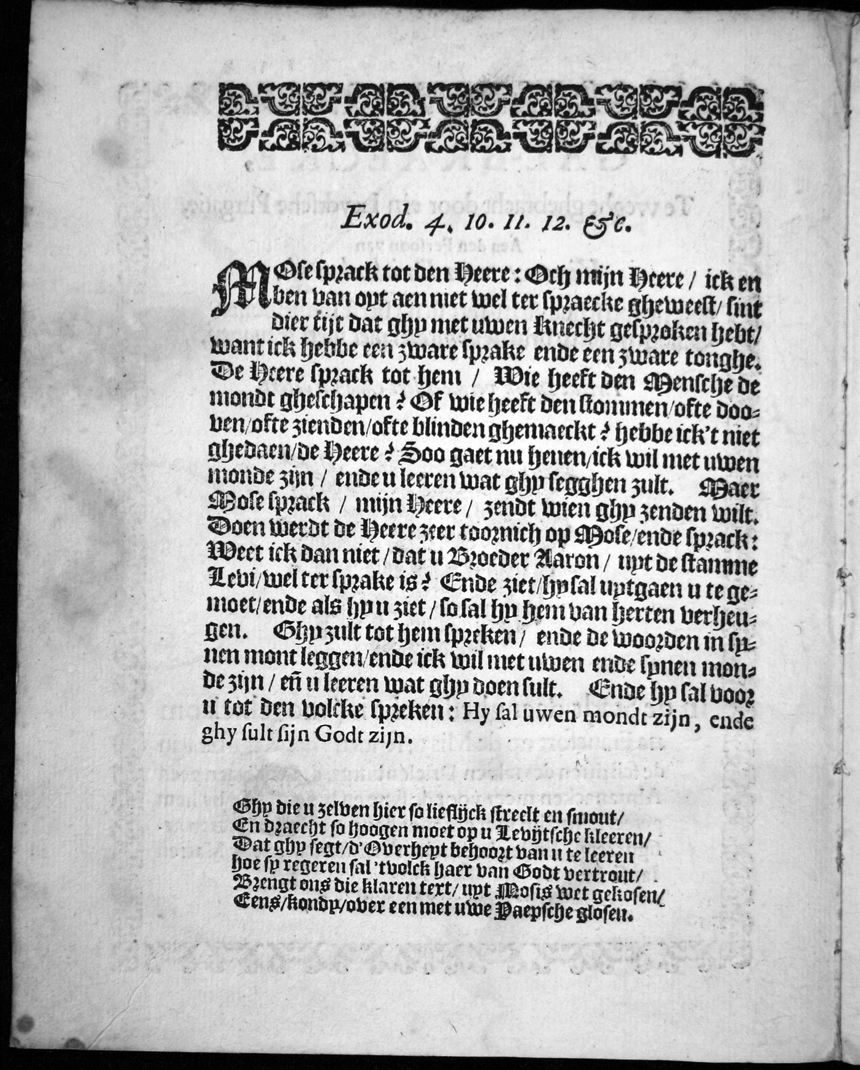 Exod. 4. 10. 11. 12. &c.
MOse sprack tot den Heere: Och mijn Heere / ick en
ben van oyt aen niet wel ter spraecke gheweest/ sint
dier tijt dat ghy met uwen Knecht gesproken hebt/
want ick hebbe een zware sprake ende een zware tonghe.
De Heere sprack tot hem / Wie heeft den Mensche de
mondt gheschapen? Of wie heeft den stommen/ofte doo-
ven/ofte zienden/ofte blinden ghemaeckt? hebbe ick't niet
ghedaen/de Heere? Soo gaet nu henen/ick wil met uwen
monde zijn / ende u leeren wat ghy segghen zult. Maer
Mose sprack / mijn Heere / zendt wien ghy zenden wilt.
Doen werdt de Heere zeer toornich op Mose/ende sprack:
Weet ick dan niet/dat u Broeder Aaron / uyt de stamme
Levi/wel ter sprake is? Ende ziet/hy sal uytgaen u te ge-
moet/ende als hy u ziet / so sal hy hem van herten verheu-
gen. Ghy zult tot hem spreken/ ende de woorden in sy-
nen mont leggen/ende ick wil met uwen ende synen mon-
de zijn / eñ u leeren wat ghy doen sult. Ende hy sal voor
u tot den volcke spreken: Hy sal uwen mondt zijn, ende
ghy sult sijn Godt zijn.
Ghy die u zelven hier so lieflijck streelt en smout/
En draecht so hoogen moet op u Levijtsche kleeren/
Dat ghy segt/d'Overheyt behoort van u te leeren
hoe sy regeren sal 'tvolck haer van Godt vertrout/
Brengt ons die klaren text/ uyt Mosis wet gekosen/
Eens/kondy/over een met uwe Paepsche glosen.